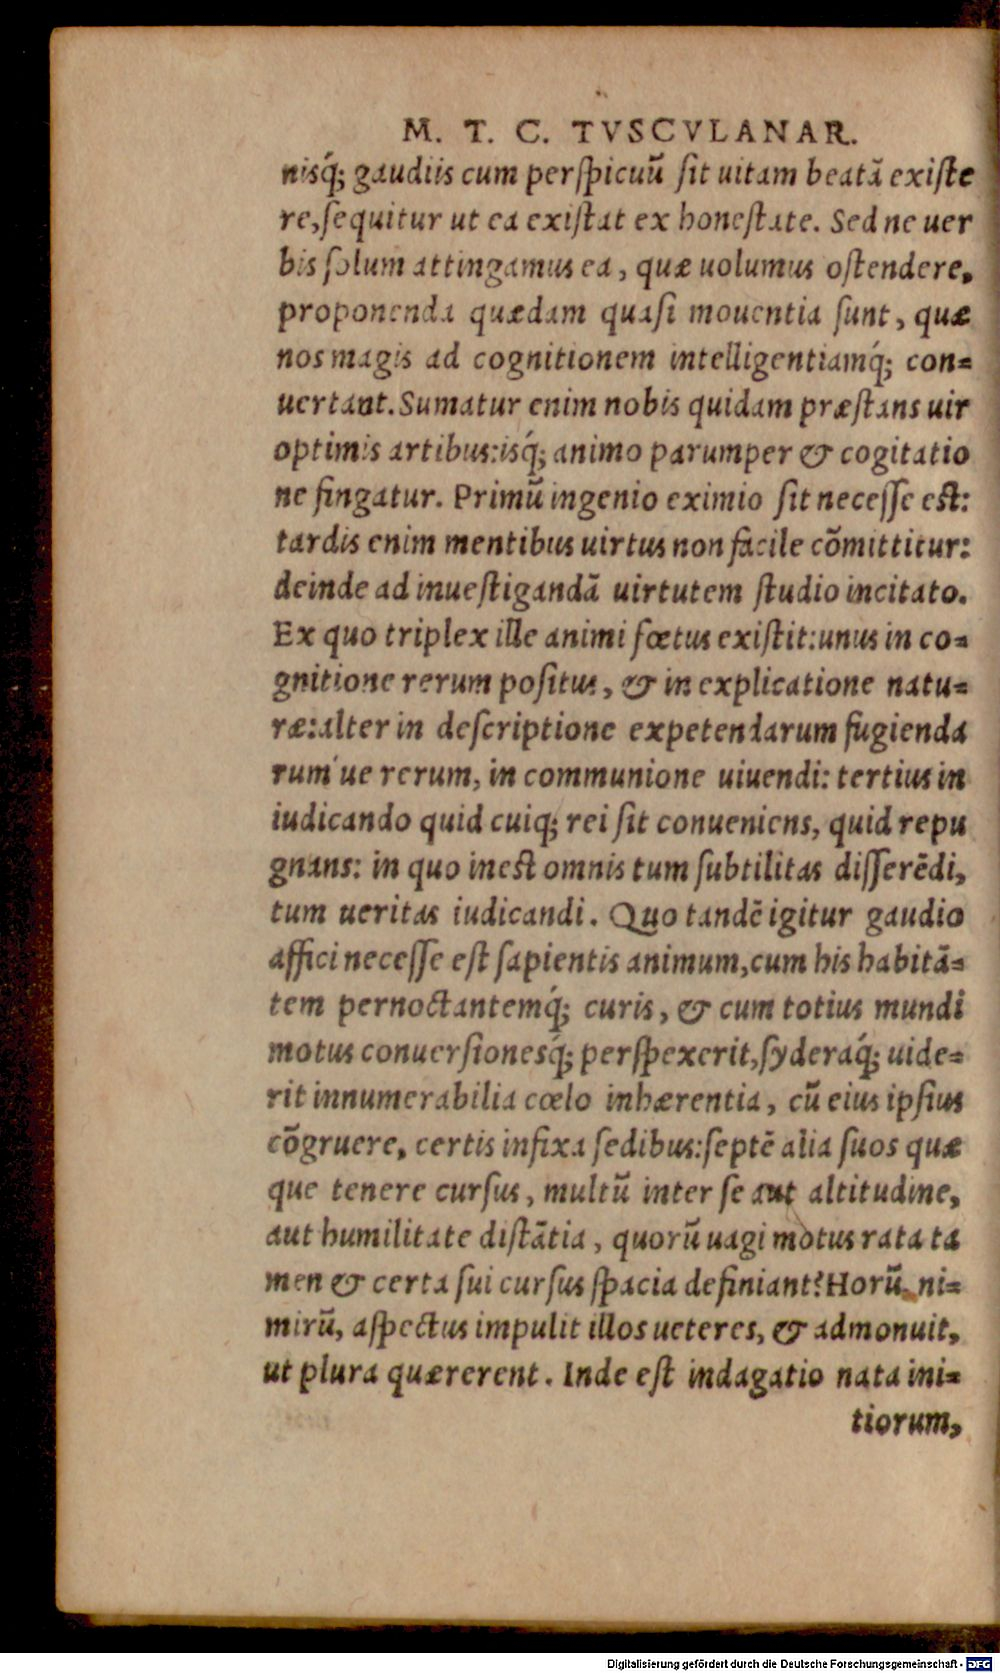 M. T. C. TVSCVLANAR.
nisq́; gaudiis cum perſpicuũ ſit uitam beatã exiſte
re, ſequitur ut ea exiſtat ex honeſtate. Sed ne uer
bis ſolum attingamus ea, quæ uolumus oſtendere,
proponenda quædam quaſi mouentia ſunt, quæ
nos magis ad cognitionem intelligentiamq́; con-
uertant. Sumatur enim nobis quidam præſtans uir
optimis artibus: isq́; animo parumper & cogitatio
ne fingatur. Primũ ingenio eximio ſit neceſſe eſt:
tardis enim mentibus uirtus non facile cõmittitur:
deinde ad inueſtigandã uirtutem ſtudio incitato.
Ex quo triplex ille animi fœtus exiſtit: unus in co-
gnitione rerum poſitus, & in explicatione natu-
ræ: alter in deſcriptione expetendarum fugienda
rum'ue rerum, in communione uiuendi: tertius in
iudicando quid cuiq; rei ſit conueniens, quid repu
gnans: in quo ineſt omnis tum ſubtilitas diſſerẽdi,
tum ueritas iudicandi. Quo tandẽ igitur gaudio
affici neceſſe eſt ſapientis animum, cum his habitã-
tem pernoctantemq́; curis, & cum totius mundi
motus conuerſionesq́; perſpexerit, ſyderaq́; uide-
rit innumerabilia cœlo inhærentia, cũ eius ipſius
cõgruere, certis infixa ſedibus: ſeptẽ alia ſuos quæ
que tenere curſus, multũ inter ſe aut altitudine,
aut humilitate diſtãtia, quorũ uagi motus rata ta
men & certa ſui curſus ſpacia definiant? Horũ ni-
mirũ, aſpectus impulit illos ueteres, & admonuit,
ut plura quærerent. Inde eſt indagatio nata ini-
tiorum,
Digitalisierung gefördert durch die Deutsche Forschungsgemeinschaft - DFG